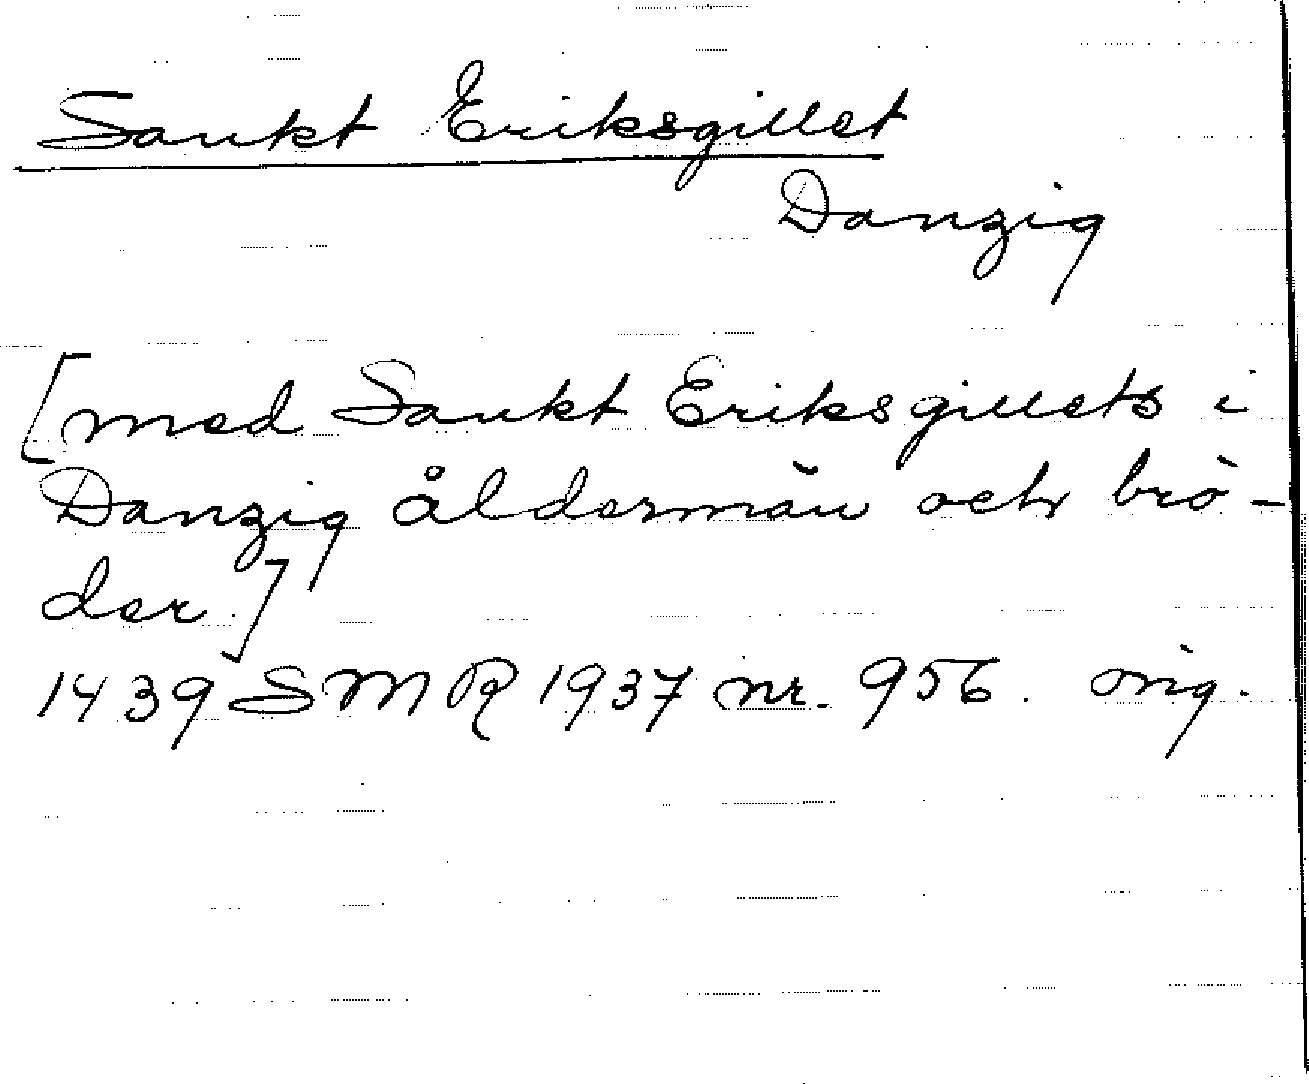 Sankt Eriksgillet
Danzig
[med Sankt Eriksgillets i
Danzig åldermän och brö-
der.]
1439 SMR 1937 nr. 956. orig.